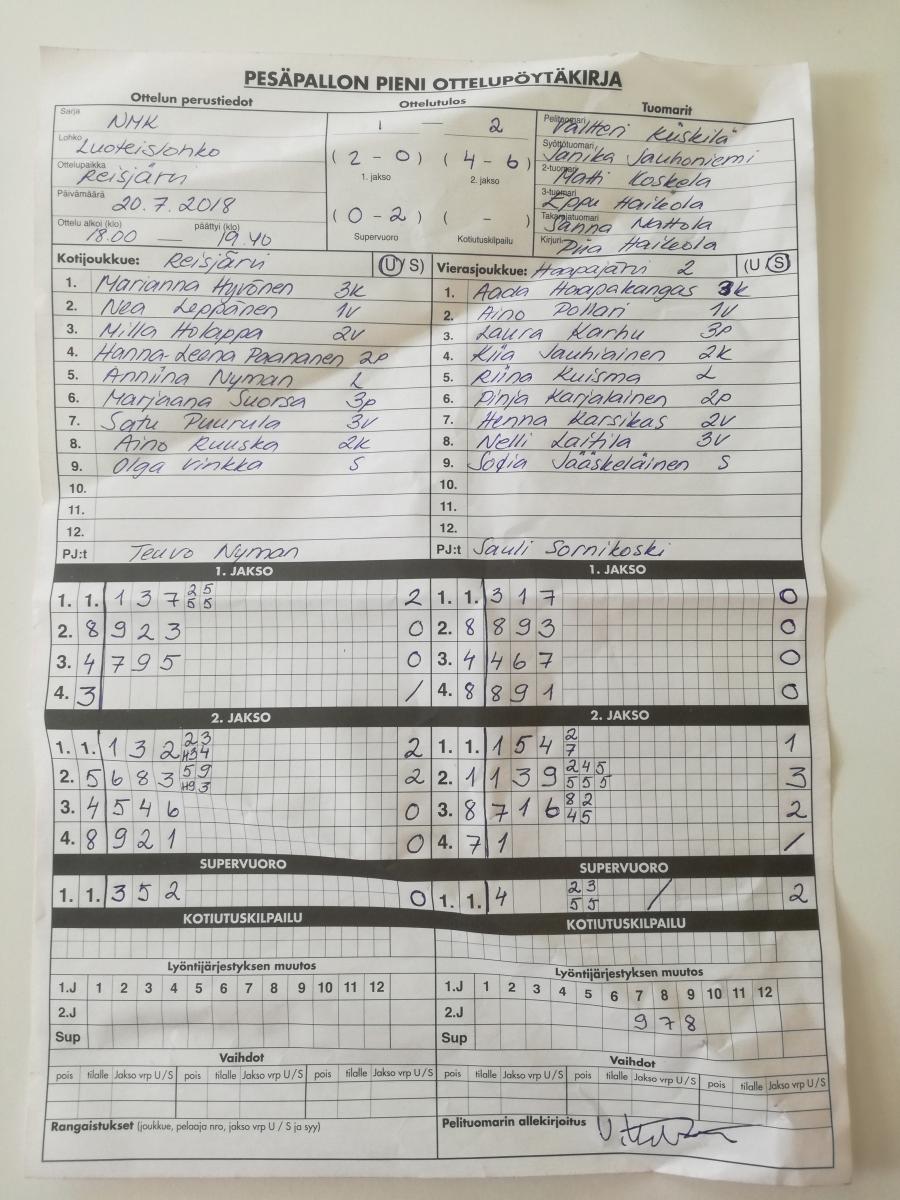 PESÄPALLON PIENI OTTELUPÖYTÄKIRJA
Ottelun perustiedot
Sarja NMK
Lohko Luoteislohko
Ottelupaikka Reisjärvi
Päivämäärä 20.7.2018
Ottelu alkoi (klo) päättyi (klo)
18.00 — 19.40
Ottelutulos
1 — 2
(2 - 0) (4 - 6)
1. jakso 2. jakso
(0 - 2) ( - )
Supervuoro Kotiutuskilpailu
Tuomarit
Pelituomari Valtteri Kiiskilä
Syöttötuomari Janika Jauhoniemi
2-tuomari Matti Koskela
3-tuomari Eppu Haikola
Takarajatuomari Sanna Nattola
Kirjuri Piia Haikola
Kotijoukkue: Reisjärvi (U/S)
1. Marianna Hyvönen 3k
2. Nea Leppänen 1v
3. Milla Holappa 2v
4. Hanna-Leena Paananen 2p
5. Anniina Nyman L
6. Marjaana Suorsa 3p
7. Satu Puurula 3v
8. Aino Ruuska 2k
9. Olga Vinkka S
10.
11.
12.
PJ:t Teuvo Nyman
Vierasjoukkue: Haapajärvi 2 (U/S)
1. Aada Haapakangas 3k
2. Aino Pollari 1v
3. Laura Karhu 3p
4. Kiia Jauhiainen 2k
5. Riina Kuisma L
6. Pinja Karjalainen 2p
7. Henna Karsikas 2v
8. Nelli Laitila 3v
9. Sofia Jääskeläinen S
10.
11.
12.
PJ:t Sauli Sornikoski
1. JAKSO
1. 1. 1 3 7 2 5 2
5 5
2. 8 9 2 3 0
3. 4 7 9 5 0
4. 3 /
1. JAKSO
1. 1. 3 1 7 0
2. 8 8 9 3 0
3. 4 4 6 7 0
4. 8 8 9 1 0
2. JAKSO
1. 1. 1 3 2 2 3 2
H3 4
2. 5 6 8 3 5 9 2
H9 3
3. 4 5 4 6 0
4. 8 9 2 1 0
2. JAKSO
1. 1. 1 5 4 2 1
7
2. 1 1 3 9 2 4 5 3
5 5 5
3. 8 7 1 6 8 2 2
4 5
4. 7 1 /
SUPERVUORO
1. 1. 3 5 2 0
SUPERVUORO
1. 1. 4 2 3 / 2
5 5
KOTIUTUSKILPAILU
KOTIUTUSKILPAILU
Lyöntijärjestyksen muutos
1.J 1 2 3 4 5 6 7 8 9 10 11 12
2.J
Sup
Lyöntijärjestyksen muutos
1.J 1 2 3 4 5 6 7 8 9 10 11 12
2.J 9 7 8
Sup
Vaihdot
pois tilalle Jakso vrp U/S pois tilalle Jakso vrp U/S pois tilalle Jakso vrp U/S
Vaihdot
pois tilalle Jakso vrp U/S pois tilalle Jakso vrp U/S pois tilalle Jakso vrp U/S
Rangaistukset (joukkue, pelaaja nro, jakso vrp U / S ja syy)
Pelituomarin allekirjoitus